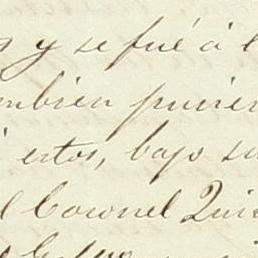 y se fué á l
mbien pusier
estos, bajo su
l Coronel Quir